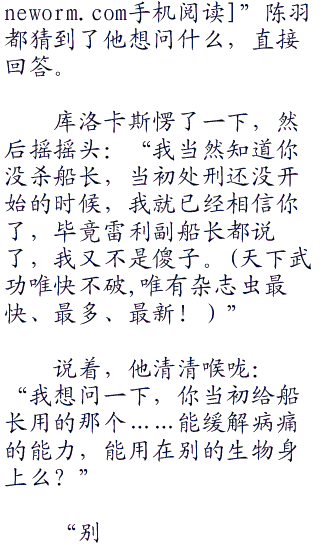 neworm.com手机阅读]”陈羽
都猜到了他想问什么，直接
回答。
库洛卡斯愣了一下，然
后摇摇头：“我当然知道你
没杀船长，当初处刑还没开
始的时候，我就已经相信你
了，毕竟雷利副船长都说
了，我又不是傻子。(天下武
功唯快不破,唯有杂志虫最
快、最多、最新！)”
说着，他清清喉咙：
“我想问一下，你当初给船
长用的那个……能缓解病痛
的能力，能用在别的生物身
上么？”
“别